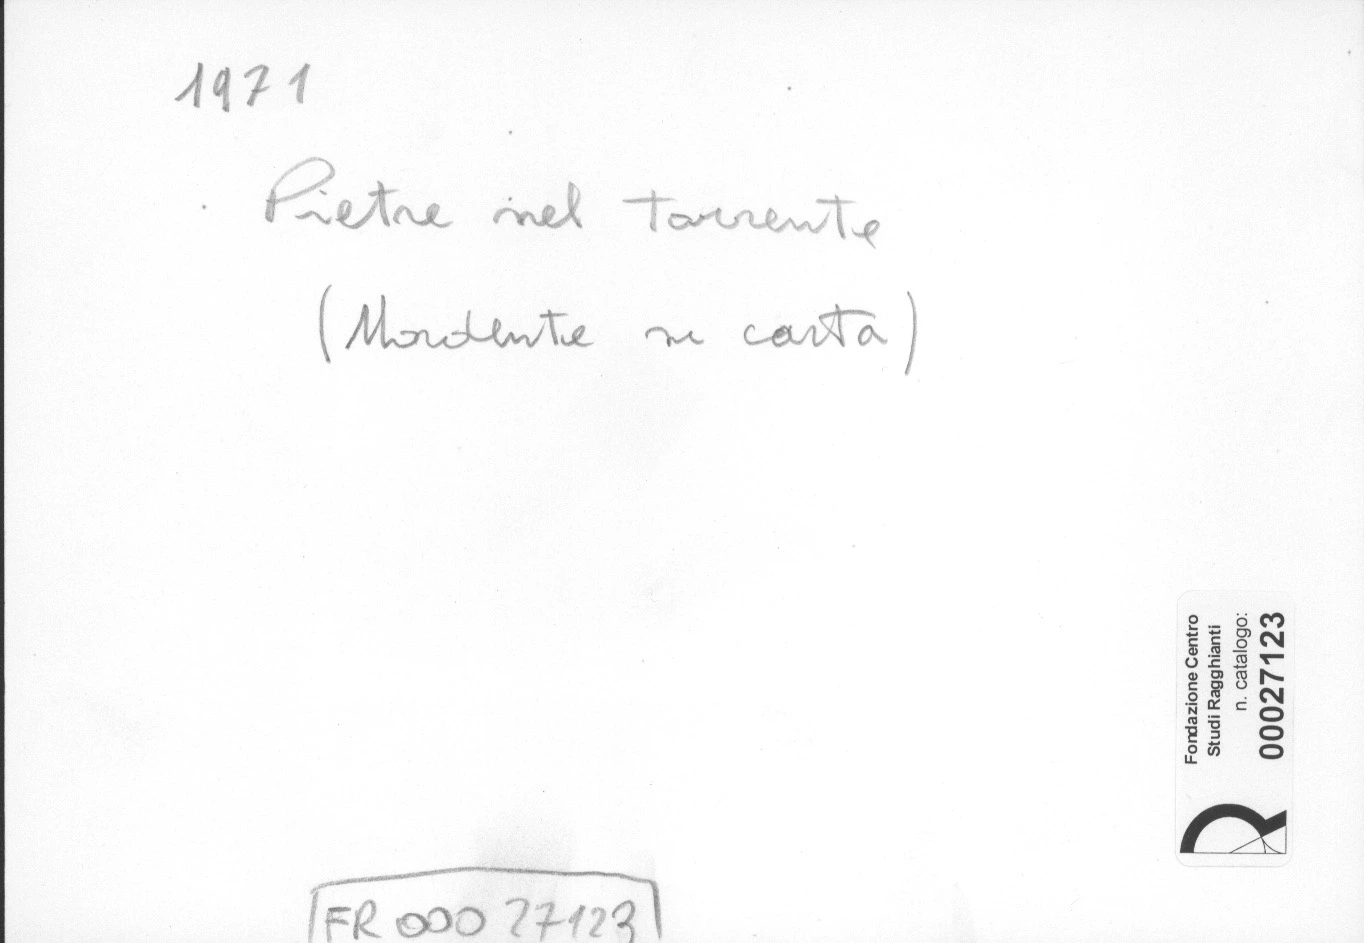 1971
Pietre nel torrente
(Mordente su carta)
Fondazione Centro
Studi Ragghianti
n. catalogo:
00027123
FR 000 27123